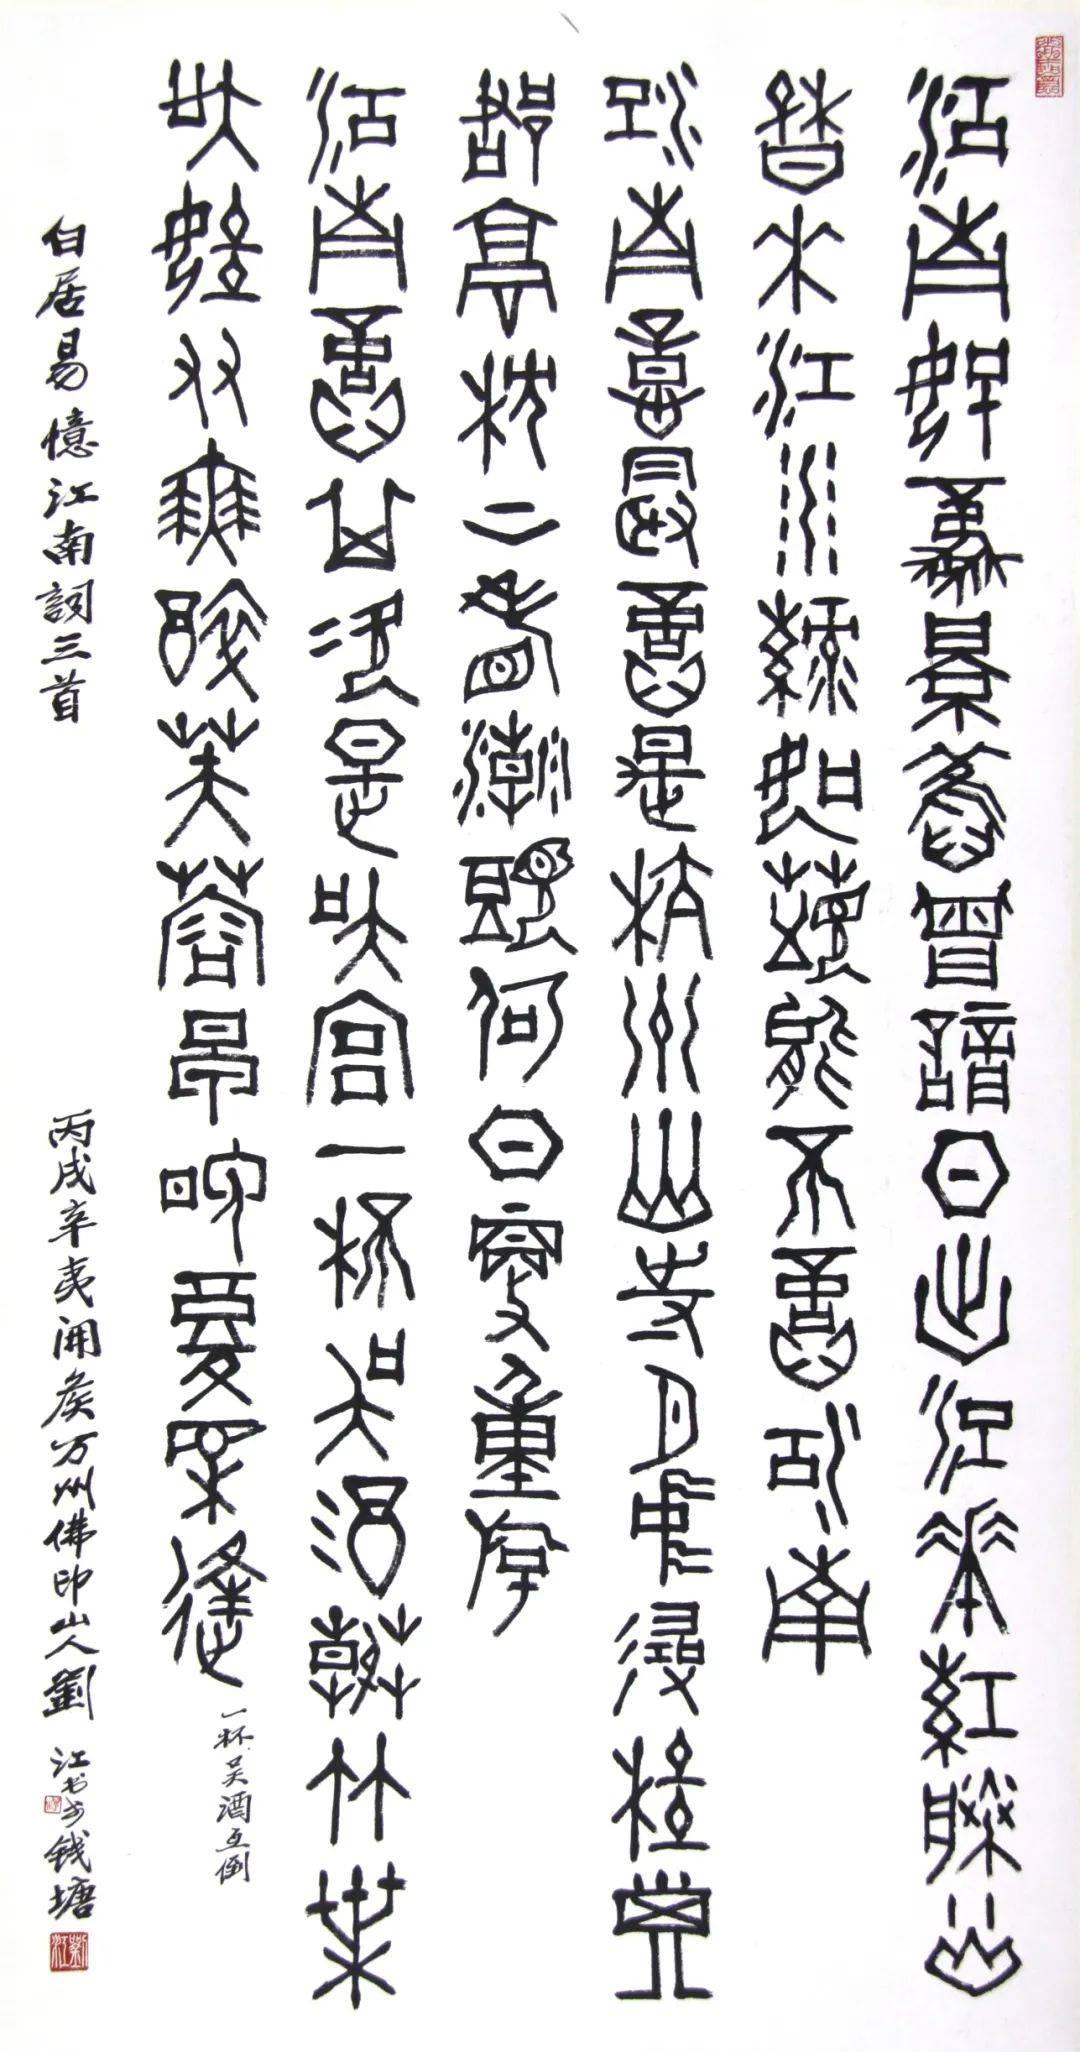 江南好風景舊曾諳日出江花紅勝火
春來江水綠如藍能不憶江南
江南憶最憶是杭州山寺月中尋桂子
郡亭枕上看潮頭何日更重游
江南憶其次是吳宮一杯吳酒春竹葉
吳娃雙舞醉芙蓉早晚復相逢
一杯吴酒互倒
白居易憶江南詞三首
丙戌辛夷開矦万州佛印山人劉江书于钱塘
劉江